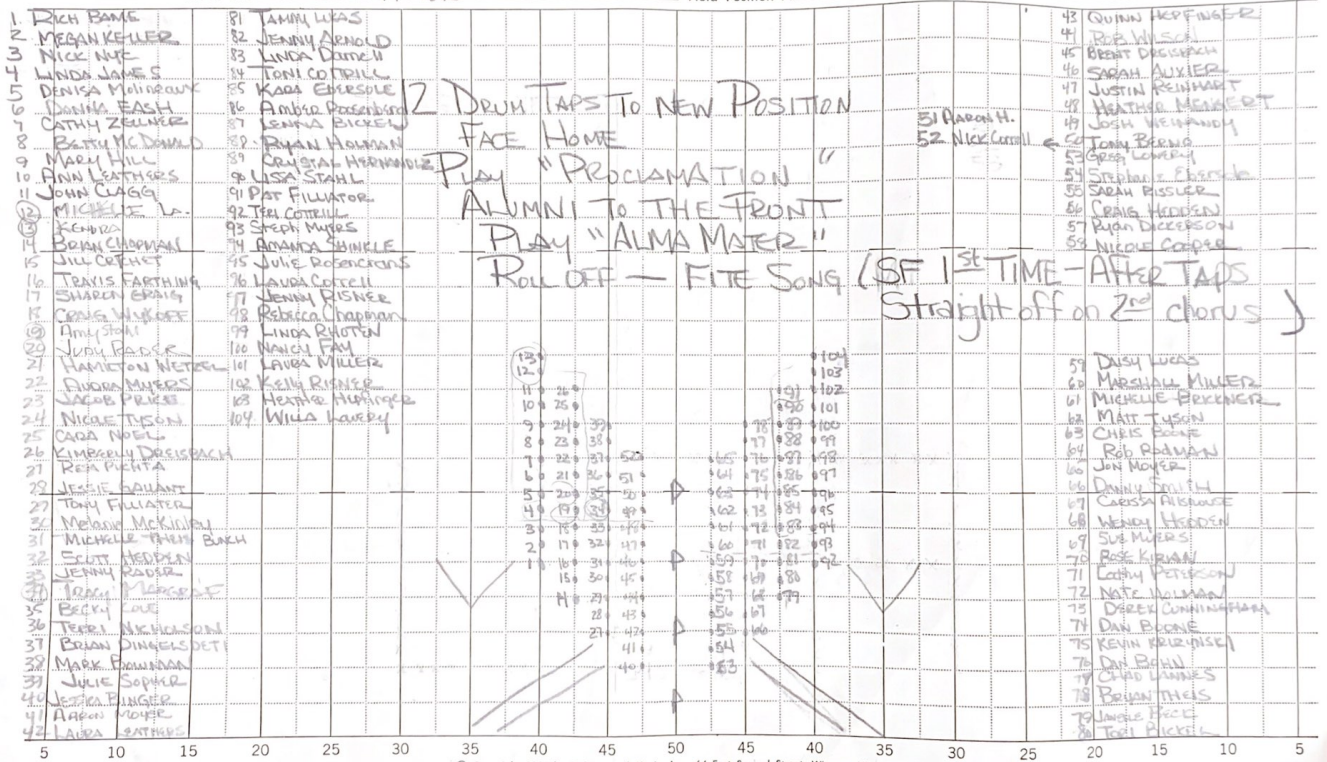 1. RICH BAME
2 MEGAN KELLER
3 NICK NYE
4 LINDA JAMES
5 DENISA Molineaux
6 DONNA EASH
7 CATHY ZELLNER
8 BETTY McDONALD
9 MARY HILL
10 ANN LEATHERS
11 JOHN CLAGG
12 MICHELLE LA.
13 KENDRA
14 BRIAN CHAPMAN
15 JILL
16 TRAVIS FARTHING
17 SHARON CRAIG
18 CRAIG WYKOFF
19 Amy Stahl
20 JUDY RADER
21 HAMILTON WETZEL
22 AUDRA MYERS
23 JACOB PRICE
24 NICOLE TYSON
25 CARA NOEL
26 KIMBERLY DREISBACH
27 REJA PUCHTA
28 JESSIE GALLANT
29 TONY FILLIATER
30 Melanie McKinley
31 MICHELLE BUNCH
32 SCOTT HEDDEN
33 JENNY RADER
34 TRACY
35 BECKY COLE
36 TERRI NICHOLSON
37 BRIAN DINGELSDETI
38 MARK BOWMAN
39 JULIE SOPHER
40 JESSICA BINGER
41 AARON MOYER
42 LAURA LEATHERS
81 TAMMY LUCAS
82 JENNY ARNOLD
83 LINDA Darnell
84 TONI COTTRILL
85 KARA EBERSOLE
86 Amber Rosenberg
87 LENNA BICKEL
88 RYAN HOLMAN
89 CRYSTAL HERNANDEZ
90 LISSA STAHL
91 PAT FILLIATOR
92 TERI COTTRILL
93 STEPH MYERS
94 AMANDA SHINKLE
95 Julie Rosencrans
96 LAURA COTTELL
97 JENNY RISNER
98 Rebecca Chapman
99 LINDA RHOTEN
100 NANCY FAY
101 LAURA MILLER
102 KELLY RISNER
103 HEATHER HEPFINGER
104 WILLA LOWERY
12 DRUM TAPS TO NEW POSITION
FACE HOME
PLAY "PROCLAMATION"
ALUMNI TO THE FRONT
PLAY "ALMA MATER"
ROLL OFF — FITE SONG (SF 1st TIME - AFTER TAPS
Straight off on 2nd chorus)
51 AARON H.
52 Nick Correll
43 QUINN HEPFINGER
44 ROB WILSON
45 BRENT DREISBACH
46 SARAH AUXIER
47 JUSTIN REINHART
48 HEATHER MENGERT
49 JOSH WEINANDY
50 TONY BERNO
53 GREG LOWERY
54 Stephanie Ebersole
55 SARAH RISSLER
56 CRAIG HEDDEN
57 Ryan DICKERSON
58 NICOLE COOPER
59 DAISY LUCAS
60 MARSHALL MILLER
61 MICHELLE BRICKNER
62 MATT TYSON
63 CHRIS BOONE
64 Rob RODMAN
65 JON MOYER
66 DANNY SMITH
67 CARISSA
68 WENDY HEDDEN
69 SUE MYERS
70 ROSE KIRIAN
71 Cathy PETERSON
72 NATE HOLMAN
73 DEREK CUNNINGHAM
74 DAN BOONE
75 KEVIN
76 DAN BOHN
77 CHAD LANNES
78 BRYAN THEIS
79 BECK
80 TORI BICKEL
13 104
12 103
11 26 91 102
10 25 90 101
9 24 39 78 89 100
8 23 38 77 88 99
7 22 37 52 65 76 87 98
6 21 36 51 64 75 86 97
5 20 35 50 63 74 85 96
4 19 34 49 62 73 84 95
3 18 33 48 61 72 83 94
2 17 32 47 60 71 82 93
1 16 31 46 59 70 81 92
15 30 45 58 69 80
14 29 44 57 68 79
28 43 56 67
27 42 55 66
41 54
40 53
5 10 15 20 25 30 35 40 45 50 45 40 35 30 25 20 15 10 5